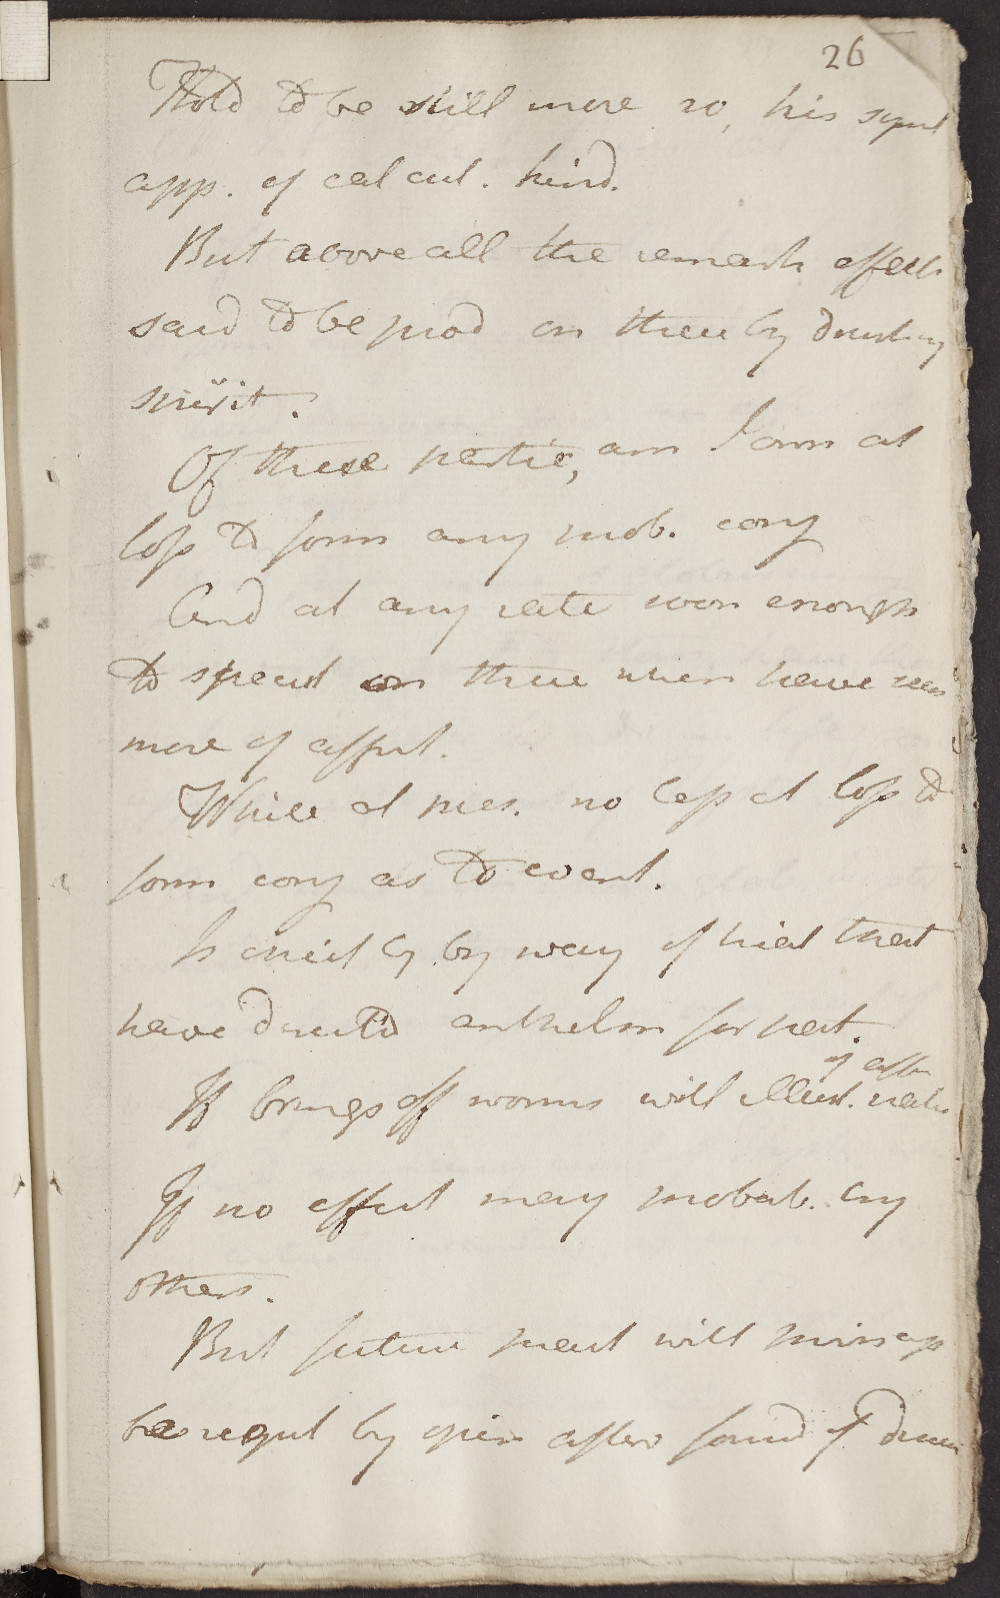 26
Hold to be still more so, his sympt
app. of calcul. kind.
But above all the remark effects
said to be prod on them by drinking
spirit.
Of these partic, am I am at
loss to form any prob. conj
And at any rate soon enough
to speak on them when have seen
more of affect.
While at pres. no less at loss to
form conj as to event.
Is chiefly by way of trial that
have direct'd anthelm for pat.
of affn
If brings off worms will illust. natur
If no effect may probab. try
others.
But future pract will princip
be regul by opin after found of